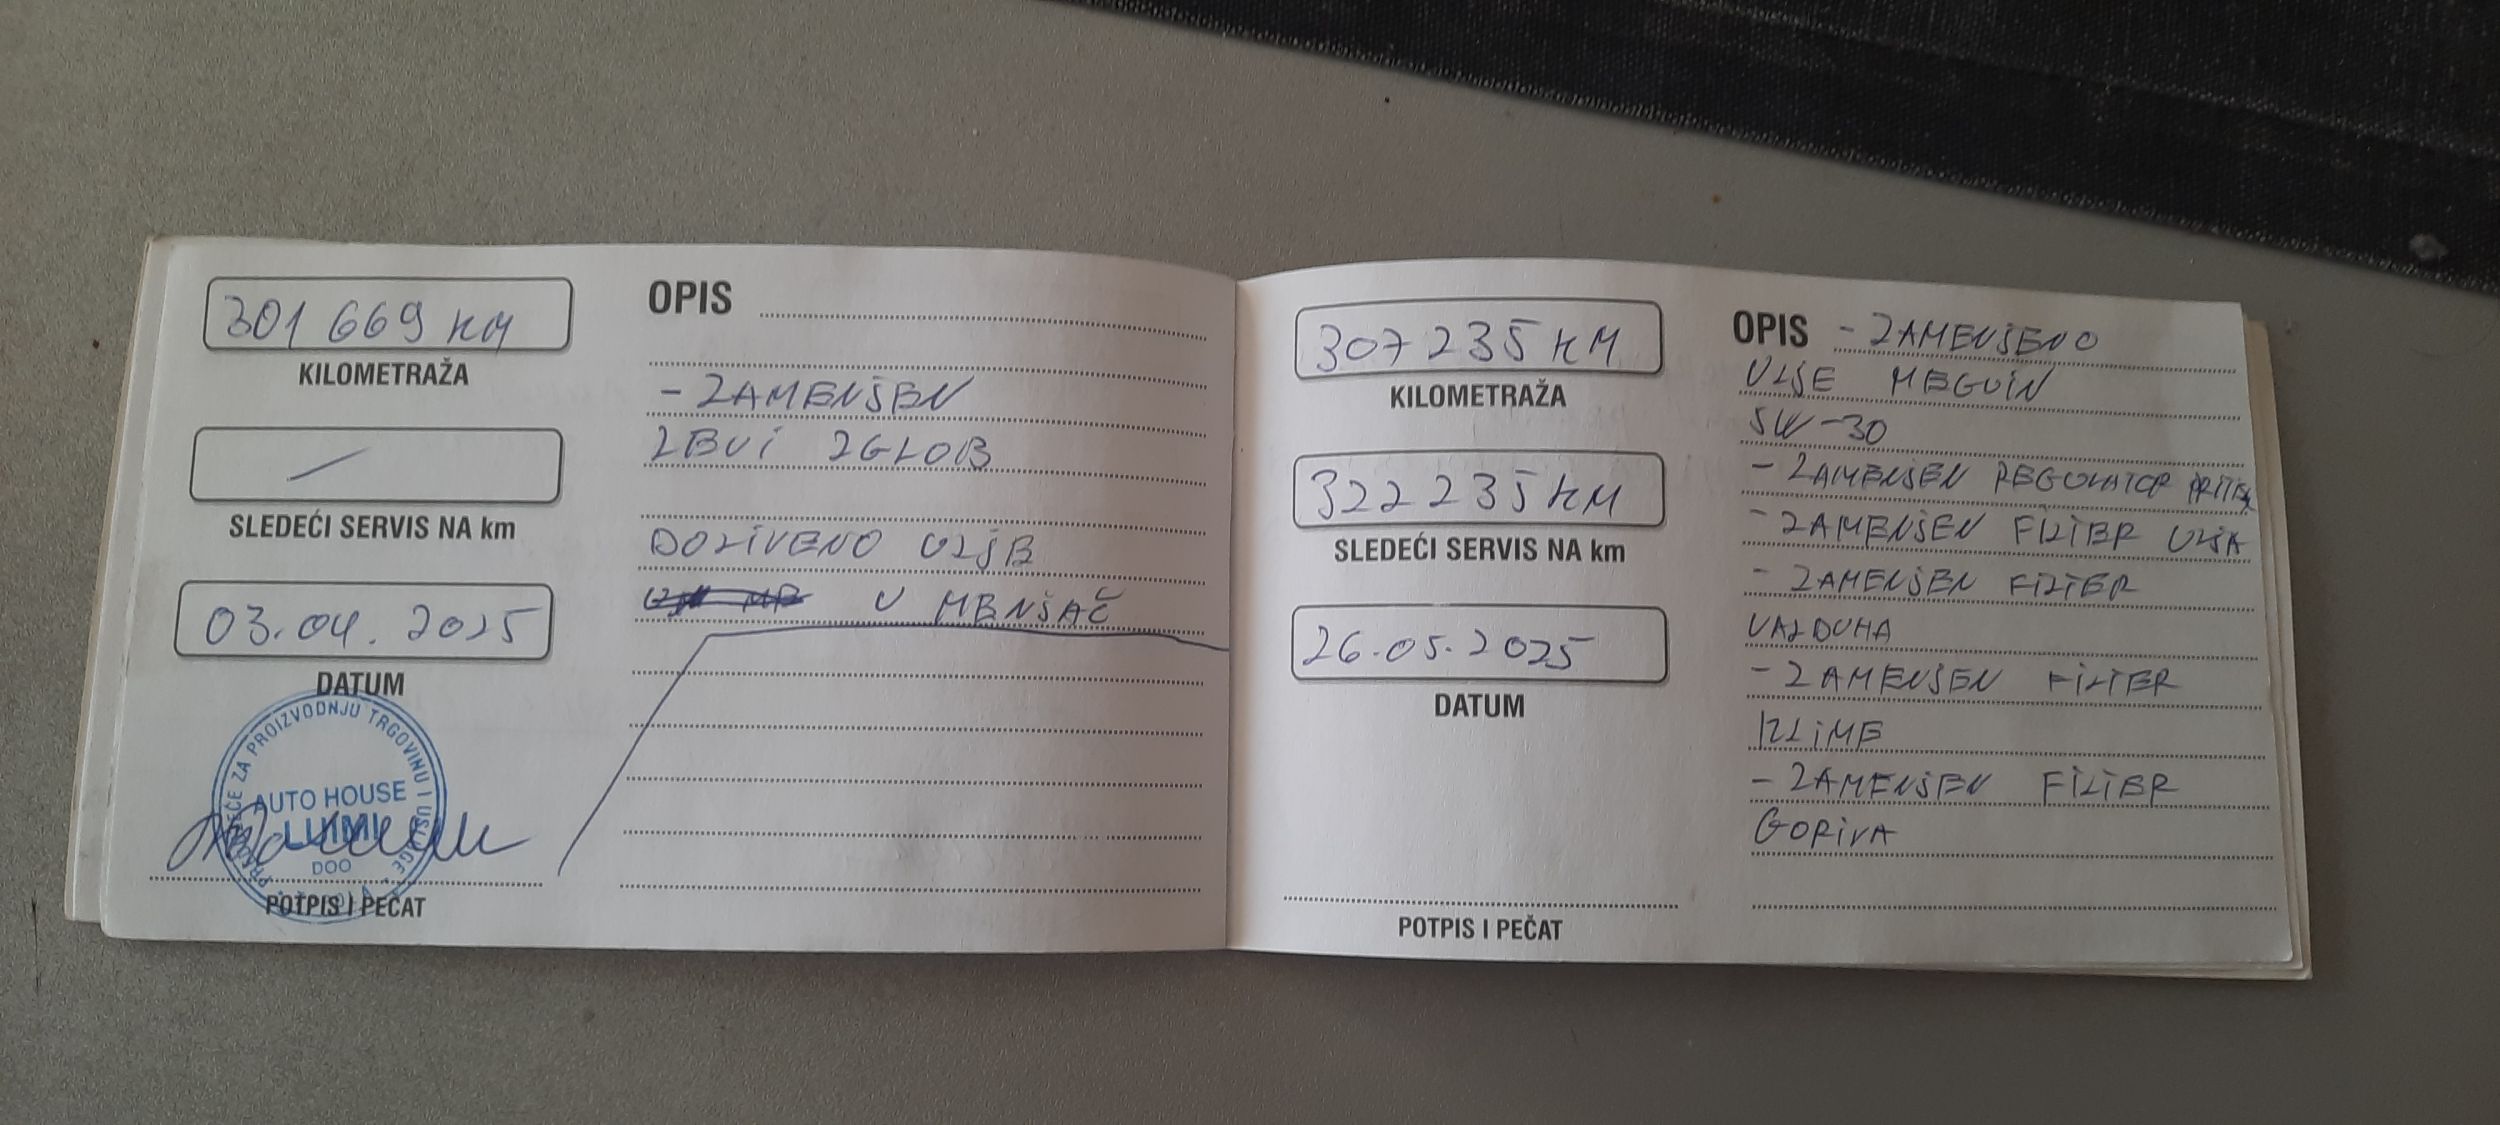 301 669 KM
KILOMETRAŽA
/
SLEDEĆI SERVIS NA km
03.04.2025
DATUM
PROIZVODNJU TRGOVINU I USLUGE
AUTO HOUSE
DOO
POTPIS I PEČAT
OPIS
- ZAMENJEN
LEVI ZGLOB
DOLIVENO ULJE
U MENJAČ
307 235 KM
KILOMETRAŽA
322 235 KM
SLEDEĆI SERVIS NA km
26.05.2025
DATUM
POTPIS I PEČAT
OPIS - ZAMENJENO
ULJE MEGUIN
5W-30
- ZAMENJEN REGULATOR PRITIS
- ZAMENJEN FILTER ULJA
- ZAMENJEN FILTER
VAZDUHA
- ZAMENJEN FILTER
KLIME
- ZAMENJEN FILTER
GORIVA